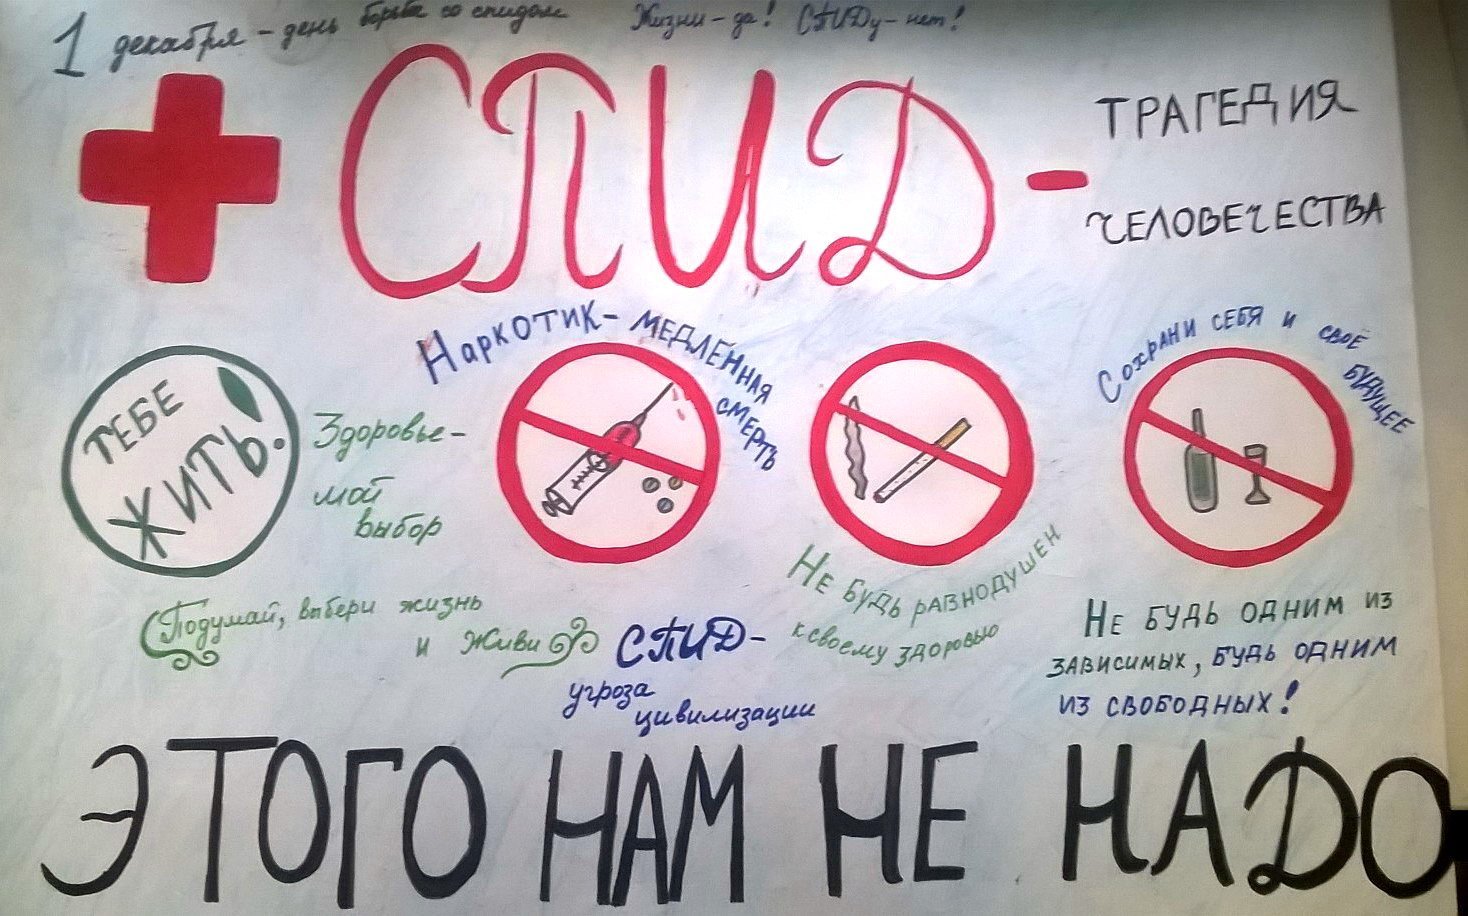 1 декабря - день борьба со спидом
Жизни - да! СПИДу - нет!
СПИД -
ТРАГЕДИЯ
ЧЕЛОВЕЧЕСТВА
ТЕБЕ
ЖИТЬ!
Здоровье -
мой
выбор
Наркотик - медленная смерть
Сохрани себя и своё будущее
Не будь равнодушен
к своему здоровью
Подумай, выбери жизнь
и живи
СПИД -
угроза
цивилизации
Не будь одним из
зависимых, будь одним
из свободных!
ЭТОГО НАМ НЕ НАДО